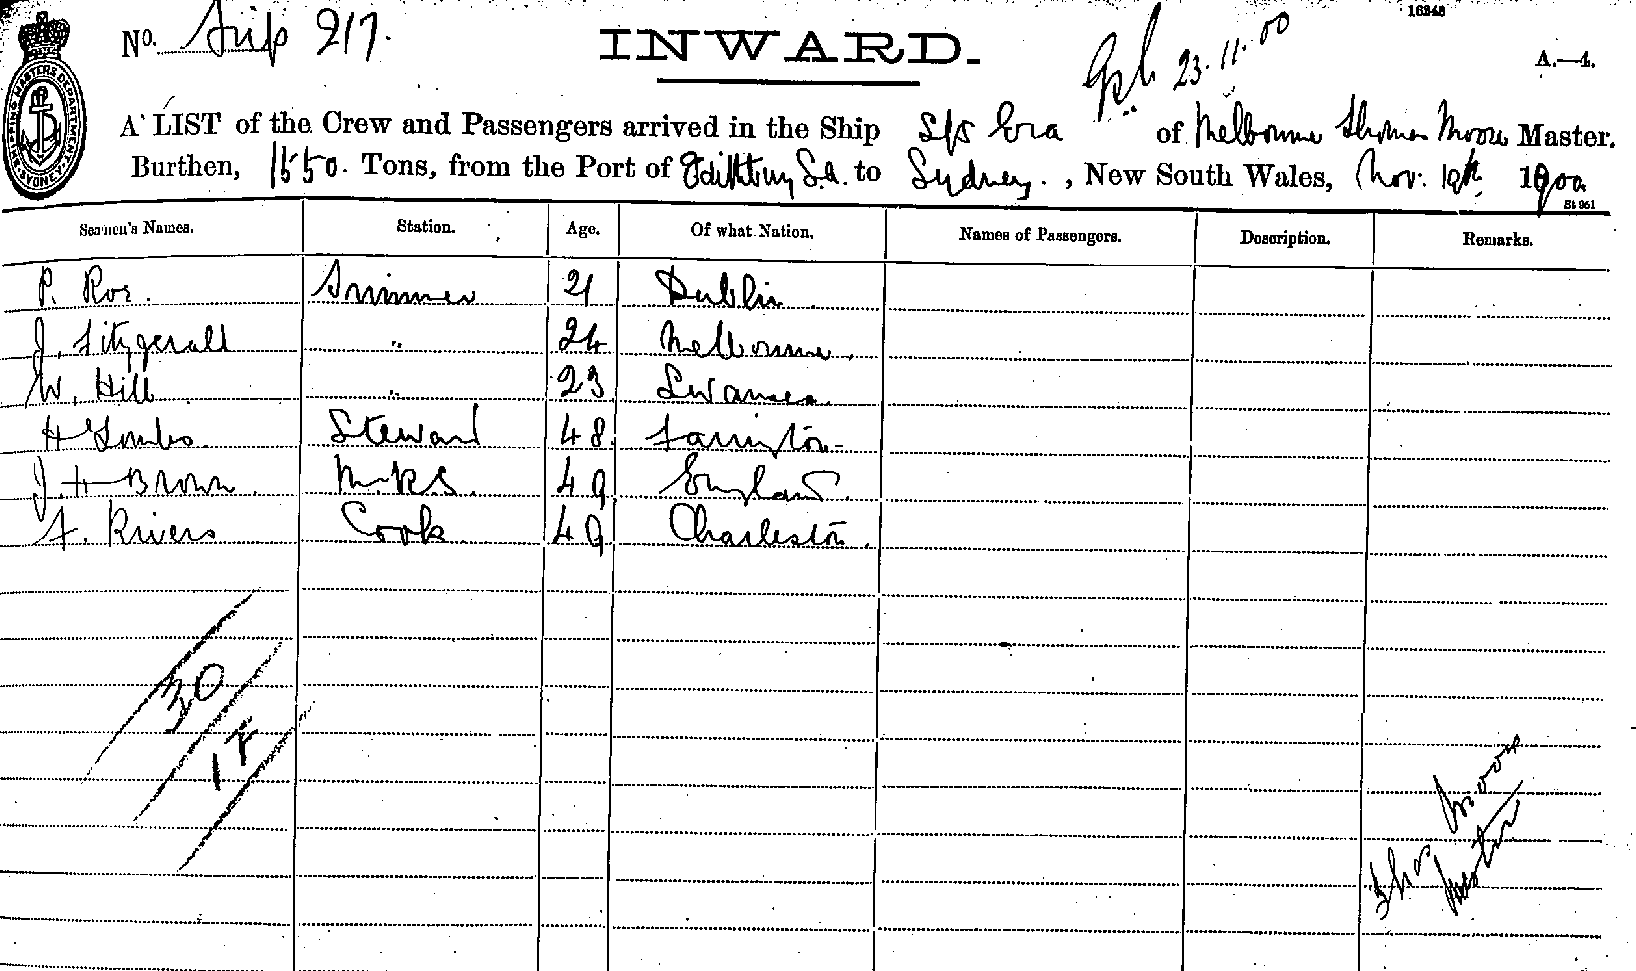 16248
No. Ship 217.
INWARD.
23.11.00
A.—4.
SHIPPING MASTERS DEPARTMENT SYDNEY
A LIST of the Crew and Passengers arrived in the Ship S/S Era of Melbourne Thomas Moore Master.
Burthen, 1550. Tons, from the Port of Edithburg S.A. to Sydney., New South Wales, Nov. 19th 1900
St 961
Seamen's Names. Station. Age. Of what Nation. Names of Passengers. Description. Remarks.
P. Roe. Trimmer 21 Dublin
J. Fitzgerald " 24 Melbourne.
W. Hill " 23 Swansea.
H Steward 48 Farrington
J. H Brown. M.R.S. 49 England.
F. Rivers Cook 49 Charleston.
30
1 F
Thos Moore
Master